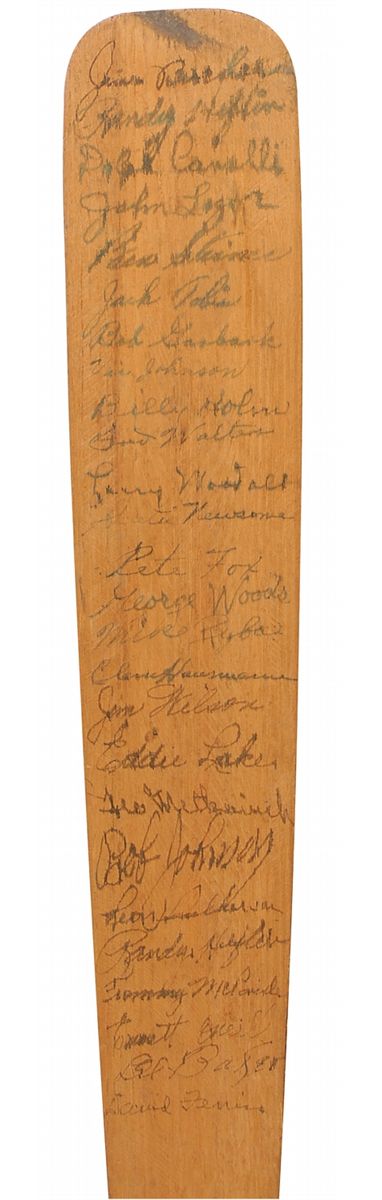 Jim
Randy Heflin
Dolph Camilli
John Lazor
Ben Steiner
Jack Tobin
Bob Garbark
Vic Johnson
Billy Holm
Bud Walters
Larry Woodall
Skeeter Newsome
Pete Fox
George Woods
Mike Ryba
Clem Hausmann
Jim Wilson
Eddie Lake
Geo Metkovich
Bob Johnson
Leon Culberson
Randy Heflin
Tommy McBride
Emmett O'Neill
Del Baker
David Ferriss